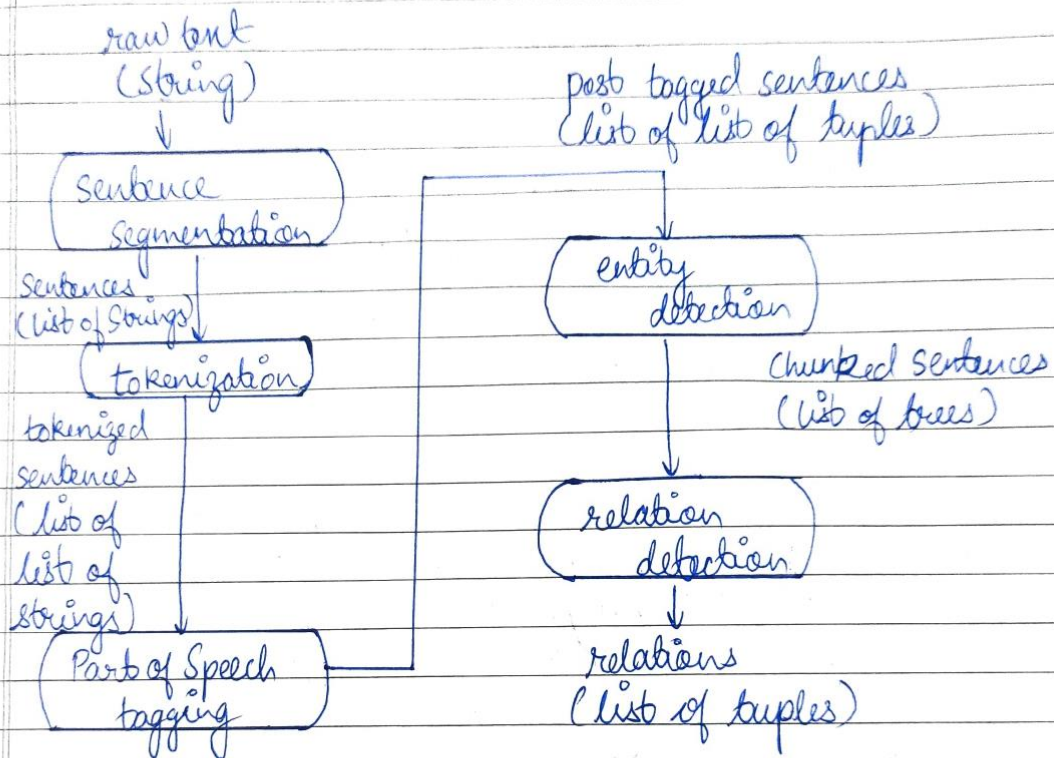 raw text
(string)
sentence
segmentation
sentences
(list of Strings)
tokenization
tokenized
sentences
(list of
list of
strings)
Part of Speech
tagging
post tagged sentences
(list of list of tuples)
entity
detection
Chunked Sentences
(list of trees)
relation
detection
relations
(list of tuples)